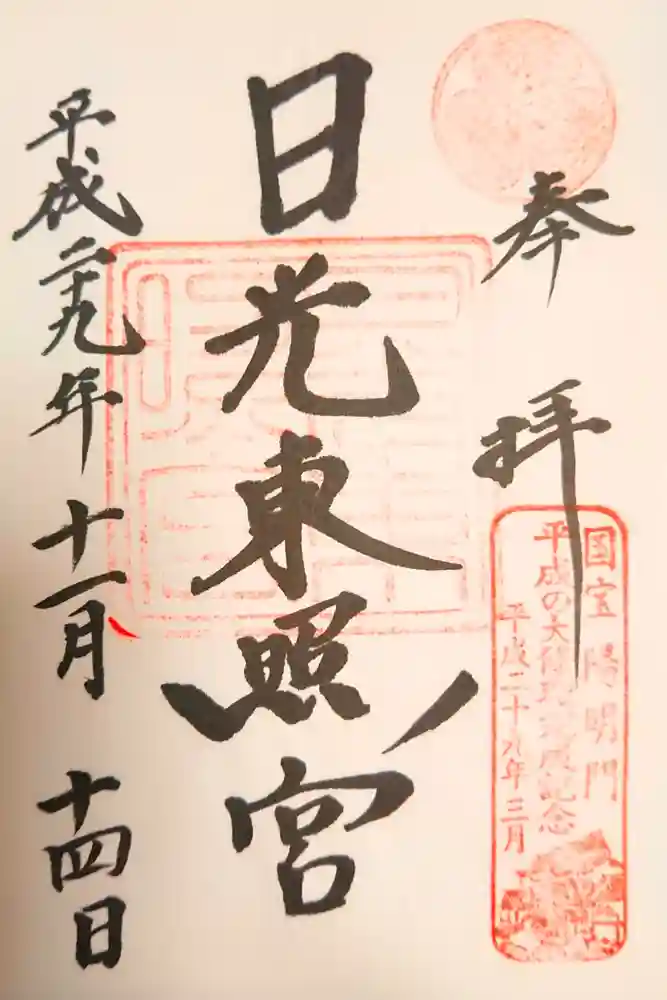 奉拝
国宝 陽明門
平成の大修理竣成記念
平成二十九年三月
日光東照宮
平成二十九年十一月十四日